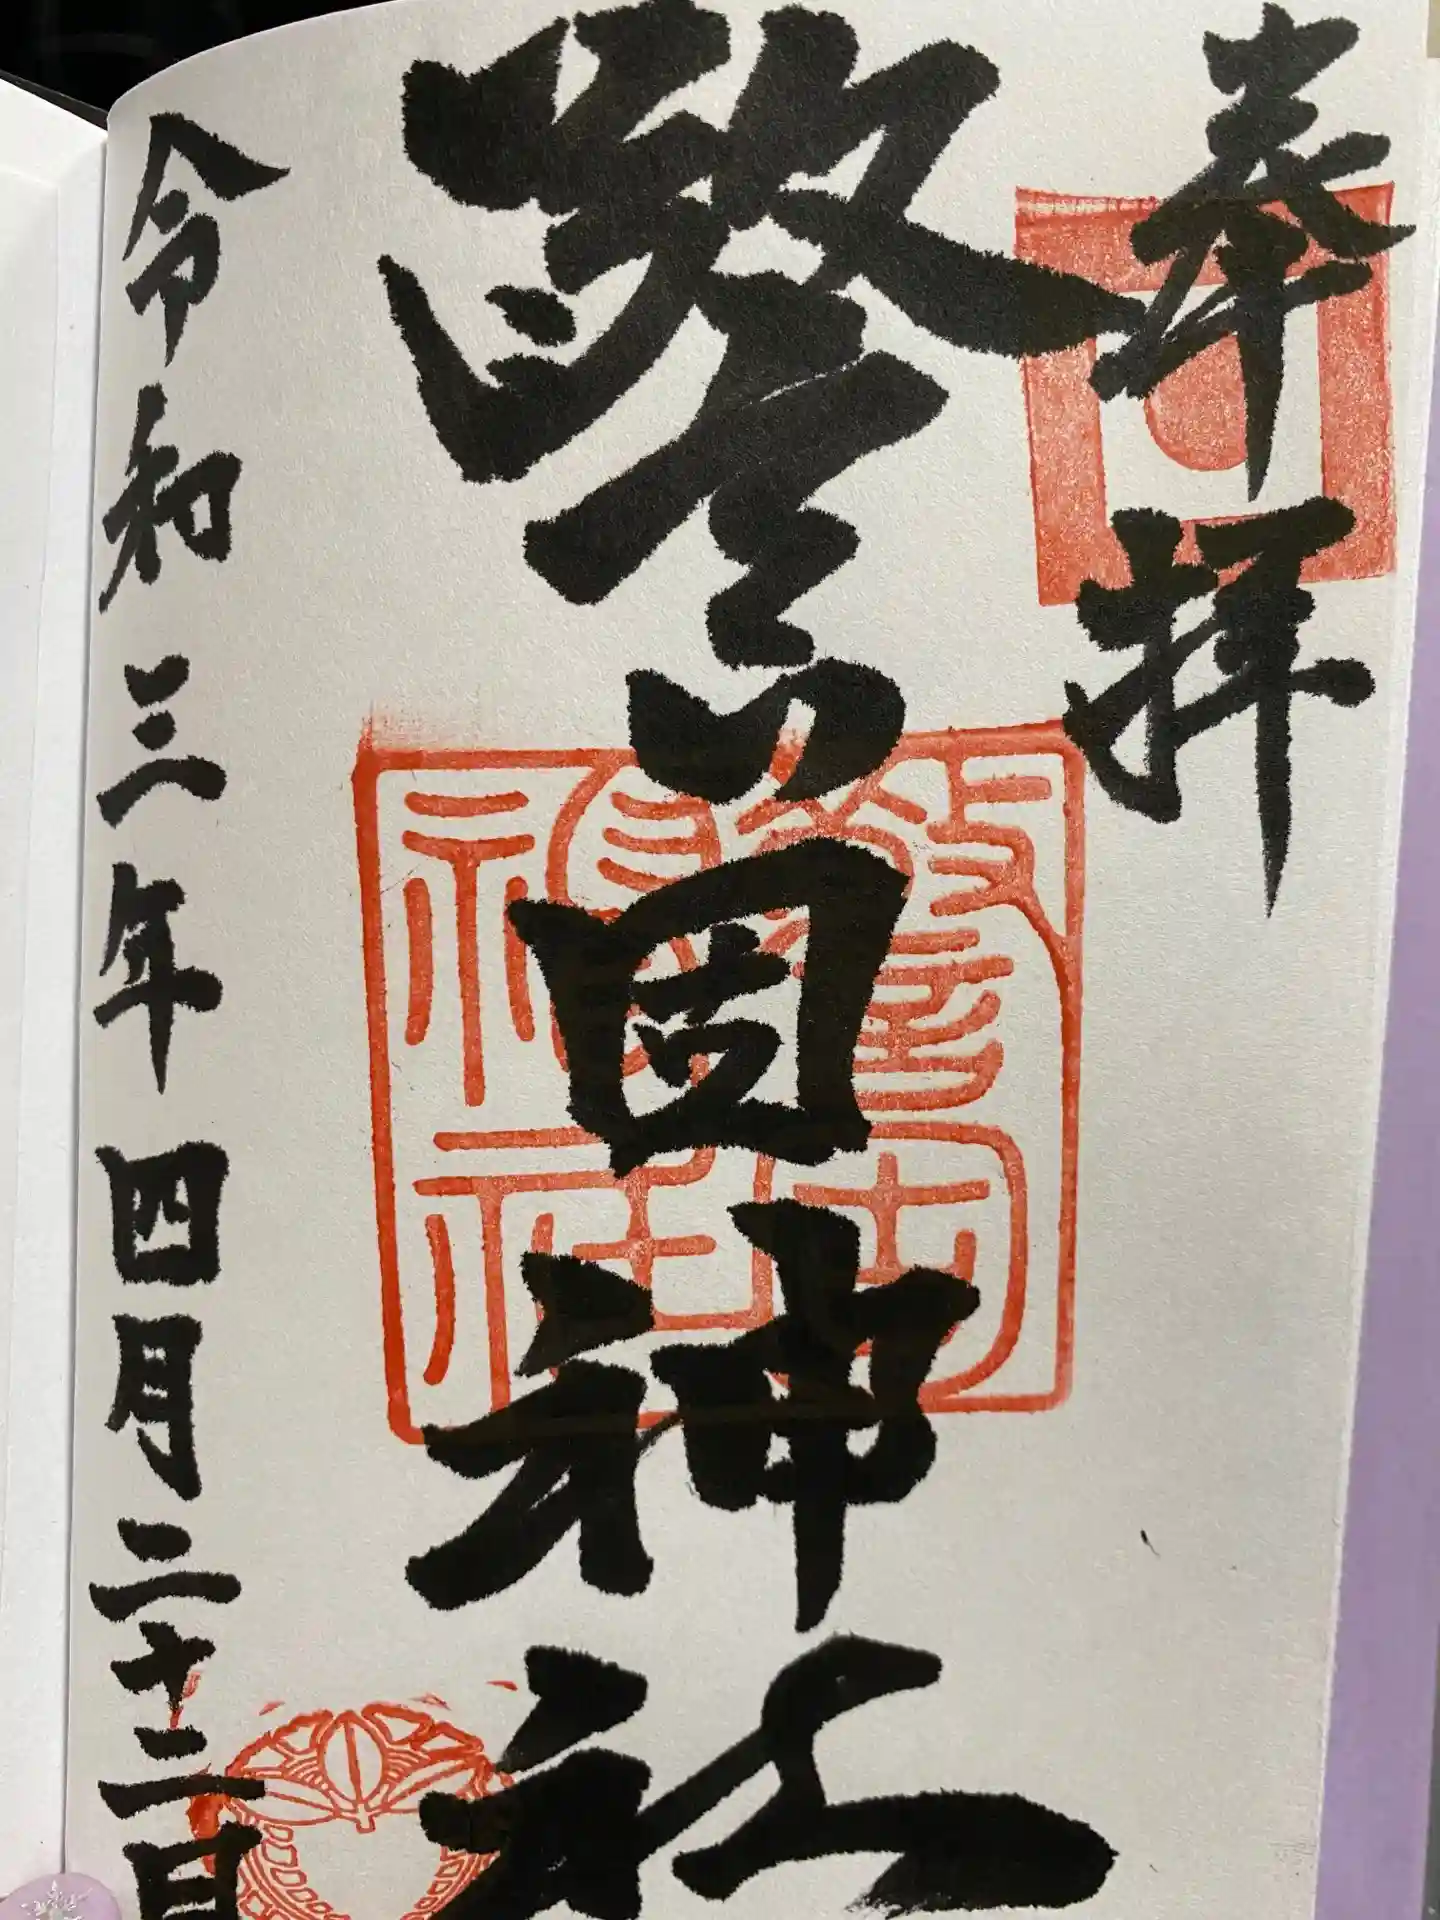 奉拝
警固神社
警固
神社
令和三年四月二十二日